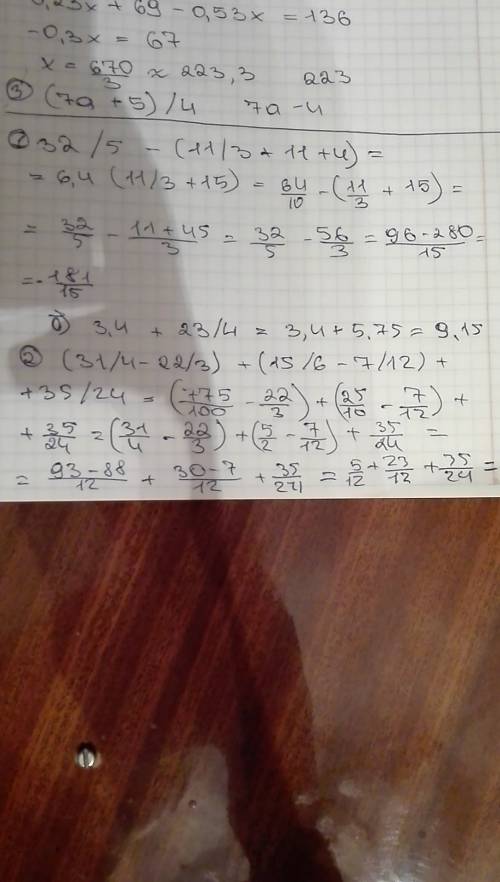 0,23x + 69 - 0,53x = 136
-0,3x = 67
x = 670/3 ≈ 223,3 223
③ (7a + 5)/4 7a - 4
① 32/5 - (11/3 + 11 + 4) =
= 6,4 (11/3 + 15) = 64/10 - (11/3 + 15) =
= 32/5 - 11+45/3 = 32/5 - 56/3 = 96-280/15 =
= - 181/15
б) 3,4 + 23/4 = 3,4 + 5,75 = 9,15
② (31/4 - 22/3) + (15/6 - 7/12) +
+ 35/24 = (775/100 - 22/3) + (25/10 - 7/12) +
+ 35/24 = (31/4 - 22/3) + (5/2 - 7/12) + 35/24 =
= 93-88/12 + 30-7/12 + 35/24 = 5/12 + 23/12 + 35/24 =